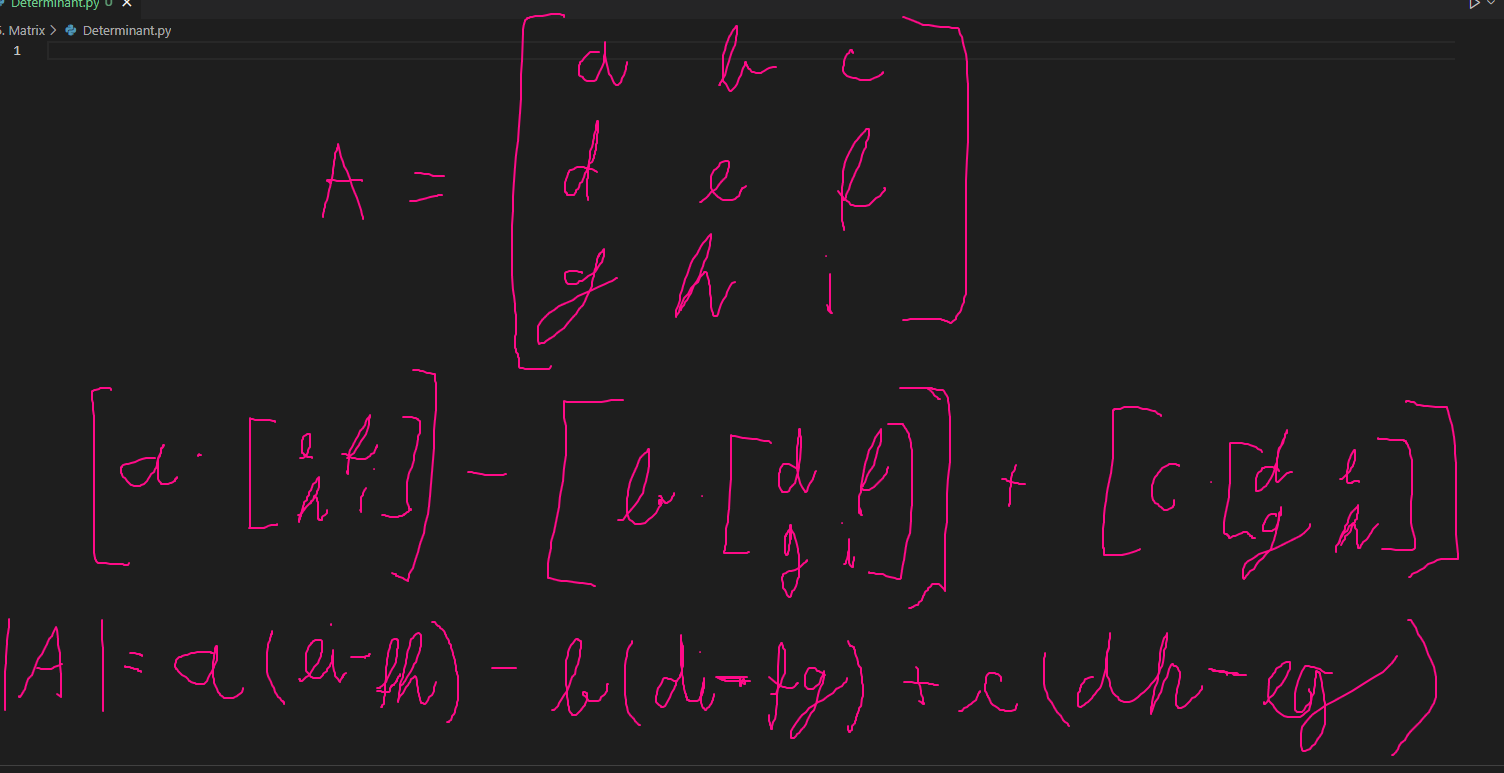 Determinant.py U ×
5. Matrix > Determinant.py
1
A = [ a b c
d e f
g h i ]
[ a · [ e f
h i ] ] - [ b · [ d f
g i ] ] + [ c · [ d e
g h ] ]
|A| = a ( ei - fh ) - b ( di - fg ) + c ( dh - eg )